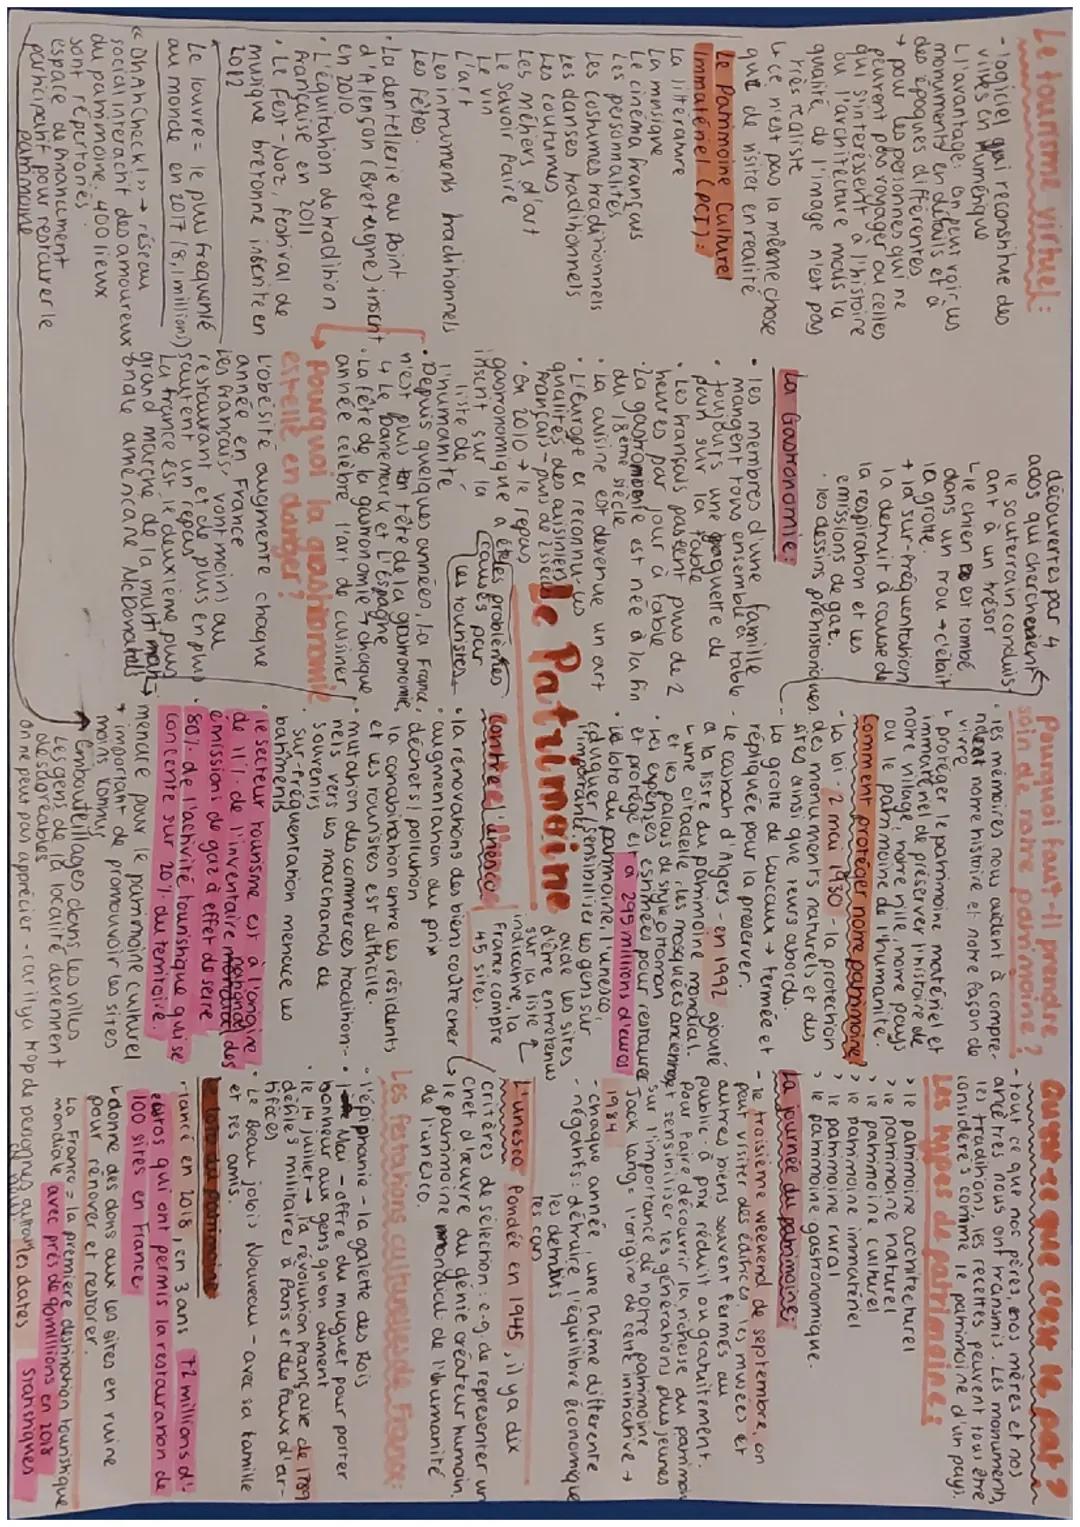 Le tourisme virtuel :
- logiciel qui reconstitue des
villes en numérique
↳ l'avantage : on peut voir les
monuments en détails et à
des époques différentes
→ pour les personnes qui ne
peuvent pas voyager ou celles
qui s'intéressent à l'histoire
ou l'architecture mais la
qualité de l'image n'est pas
très realiste
↳ ce n'est pas la même chose
que de visiter en realité
Le Patrimoine Culturel
Immatériel (PCI) :
La litterature
La musique
Le cinéma français
Les personnalités
Les costumes traditionnels
Les danses traditionnels
Les coutumes
Les métiers d'art
Le savoir faire
Le vin
L'art
Les intruments traditionnels
Les fêtes.
• La dentellerie au point
d'Alençon (Bretagne) inscrit
en 2010
• L'équitation de tradition
française en 2011
• Le fest-Noz, festival de
musique bretonne inscrite en
2012
Le louvre = le plus frequenté
au monde en 2017 (8,1 millions)
« DhAhCheck! » → réseau
social interactif des amoureux
du patrimoine. 400 lieux
sont répertoriés
espace de financement
participatif pour restaurer le
patrimoine
découvertes par 4
ados qui cherchaient
le souterrain conduis-
ant à un trésor
↳ le chien est tombé
dans un trou → c'était
la grotte.
→ la sur-fréquentation
la détruit à cause de
la respiration et les
emissions de gaz.
• les dessins préhistoriques
La Gastronomie :
• les membres d'une famille
mangent tous ensemble à table
• toujours une baguette de
pain sur la table
• Les français passent plus de 2
heures par jour à table
• La gastronomie est née à la fin
du 18eme siècle
• La cuisine est devenue un art
• L'Europe a reconnu les
qualités des cuisiniers
français - plus de 2 siècles
• en 2010 → le repas
gastronomique a été
inscrit sur la
liste de
l'humanité
des problèmes
causés par
les touristes
• Depuis quelques années, la France
n'est plus en tête de la gastronomie
↳ Le Danemark et L'Espagne
• La fête de la gastronomie → chaque
année celèbre l'art de cuisiner
→ Pourquoi la gastronomie
est-elle en danger?
L'obésité augmente chaque
année en France
Les français vont moins au
restaurant et de plus en plus
sautent un repas
La france est le deuxième plus
grand marché de la multi nati-
onale américaine McDonalds
Le Patrimoine
Pourquoi faut-il prendre
soin de notre patrimoine ?
• les mémoires nous aident à compre-
ndre notre histoire et notre façon de
vivre
↳ protéger le patrimoine matériel et
immatériel de préserver l'histoire de
notre village, notre ville, notre pays
ou le patrimoine de l'humanité.
Comment protéger notre patrimoine?
- La loi - 2 mai 1930 - la protection
des monuments naturels et des
sites ainsi que leurs abords.
- La grotte de Lascaux → fermée et
répliquée pour la préserver.
- Le casbah d'Algers - en 1992 ajouté
a la liste du patrimoine mondial.
↳ une citadelle, les mosquées anciennes
et les palais de style ottoman
• Les expenses estimées pour restaurer
et protégé est à 295 millions d'euros
• Le loto du patrimoine, l'unesco,
éduquer / sensibiliser les gens sur
l'importance.
Contre l'unesco
aide les sites
d'être entretenus
sur la liste
indicative, la
France compte
45 sites.
• la rénovations des biens coûte cher
• augmentation du prix
• déchets / pollution
• la cohabitation entre les résidents
et les touristes est difficile.
• mutation des commerces tradition-
nels vers les marchands de
souvenirs
• sur-fréquentation menace les
batiments
• le secteur tourisme est à l'origine
de 11% de l'inventaire national des
emissions de gaz à effet de serre
• 80% de l'activité touristique qui se
concente sur 20% du territoire.
menace pour le patrimoine culturel
→ important de pronouvoir les sites
moins konnus
→ Embouteillages dans les villes
Les gens de la localité deviennent
désagréables
On ne peut pas apprécier - car il y a trop de personnes autour
Qu'est-ce que c'est le pat ?
- tout ce que nos pères, nos mères et nos
ancêtres nous ont transmis. Les monuments,
les traditions, les recettes peuvent tous être
considérés comme le patrimoine d'un pays.
Les types de patrimoine :
> le patrimoine architecturel
> le patrimoine naturel
> le patrimoine culturel
> le patrimoine immatériel
> le patrimoine rural
> le patrimoine gastronomique.
La journée du patrimoine :
- le troisième weekend de septembre, on
peut visiter des édifices, les musées et
autres biens souvent fermés au
public - à prix réduit ou gratuitement.
- Pour faire découvrir la richesse du patrimoine
et sensibiliser les générations plus jeunes
sur l'importance de notre patrimoine
- Jack Lang = l'origine de cette initiative →
1984
- chaque année, une thème différente
- négatifs : détruire l'équilibre économique
L'unesco fondée en 1945, il y a dix
critères de sélection : e.g. de representer un
chef d'œuvre du génie créateur humain.
↳ le patrimoine mondial de l'humanité
de l'unesco.
Les festations culturelles de France:
• l'épiphanie - la galette des Rois
• 1er Mai - offre du muguet pour porter
bonheur aux gens qu'on aiment
• le 14 juillet → la révolution française de 1789
défilés militaires à Paris et des faux d'ar-
tifices
• Le Beau jolais Nouveau - avec sa famille
et ses amis.
Le loto du patrimoine
• lancé en 2018, en 3 ans 72 millions d'
euros qui ont permis la restauration de
100 sites en France.
↳ donne des dons aux les sites en ruine
pour rénover et restorer.
La France = la première destination touristique
mondiale avec près de 90 millions en 2018
dates Statistiques